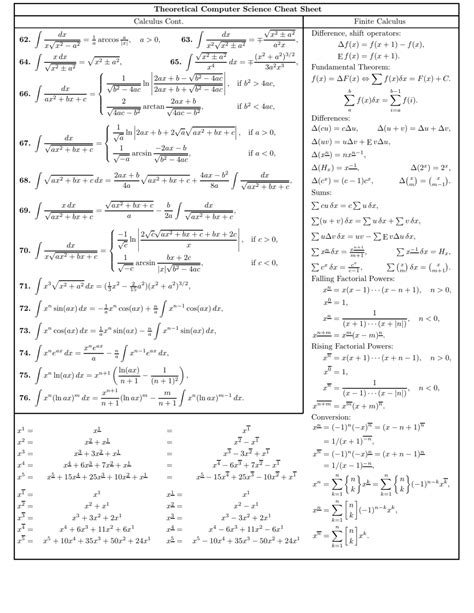 Theoretical Computer Science Cheat Sheet
Calculus Cont.
62. ∫ dx/(x√(x² − a²)) = (1/a) arccos (a/|x|), a > 0, 63. ∫ dx/(x²√(x² ± a²)) = ∓ √(x² ± a²)/(a²x),
64. ∫ x dx/√(x² ± a²) = √(x² ± a²), 65. ∫ √(x² ± a²)/x⁴ dx = ∓ (x² + a²)^{3/2}/(3a²x³),
66. ∫ dx/(ax² + bx + c) = { (1/√(b² − 4ac)) ln |(2ax + b − √(b² − 4ac))/(2ax + b + √(b² − 4ac))|, if b² > 4ac,
(2/√(4ac − b²)) arctan ((2ax + b)/√(4ac − b²)), if b² < 4ac,
67. ∫ dx/√(ax² + bx + c) = { (1/√a) ln |2ax + b + 2√a √(ax² + bx + c)|, if a > 0,
(1/√−a) arcsin ((−2ax − b)/√(b² − 4ac)), if a < 0,
68. ∫ √(ax² + bx + c) dx = ((2ax + b)/4a) √(ax² + bx + c) + ((4ax − b²)/8a) ∫ dx/√(ax² + bx + c),
69. ∫ x dx/√(ax² + bx + c) = √(ax² + bx + c)/a − (b/2a) ∫ dx/√(ax² + bx + c),
70. ∫ dx/(x√(ax² + bx + c)) = { (−1/√c) ln |(2√c √(ax² + bx + c) + bx + 2c)/x|, if c > 0,
(1/√−c) arcsin ((bx + 2c)/(|x|√(b² − 4ac))), if c < 0,
71. ∫ x³√(x² + a²) dx = (⅓x² − (2/15)a²)(x² + a²)^{3/2},
72. ∫ xⁿ sin(ax) dx = −(1/a)xⁿ cos(ax) + (n/a) ∫ xⁿ⁻¹ cos(ax) dx,
73. ∫ xⁿ cos(ax) dx = (1/a)xⁿ sin(ax) − (n/a) ∫ xⁿ⁻¹ sin(ax) dx,
74. ∫ xⁿe^{ax} dx = xⁿe^{ax}/a − (n/a) ∫ xⁿ⁻¹e^{ax} dx,
75. ∫ xⁿ ln(ax) dx = xⁿ⁺¹ (ln(ax)/(n + 1) − 1/(n + 1)²),
76. ∫ xⁿ(ln ax)ᵐ dx = (xⁿ⁺¹/(n + 1)) (ln ax)ᵐ − (m/(n + 1)) ∫ xⁿ(ln ax)ᵐ⁻¹ dx.
Finite Calculus
Difference, shift operators:
Δf(x) = f(x + 1) − f(x),
E f(x) = f(x + 1).
Fundamental Theorem:
f(x) = ΔF(x) ⇔ ∑ f(x)δx = F(x) + C.
∑_a^b f(x)δx = ∑_{i=a}^{b−1} f(i).
Differences:
Δ(cu) = cΔu, Δ(u + v) = Δu + Δv,
Δ(uv) = uΔv + E vΔu,
Δ(x^{n̲}) = nx^{n̲−̲1̲},
Δ(H_x) = x^{−̲1̲}, Δ(2ˣ) = 2ˣ,
Δ(cˣ) = (c − 1)cˣ, Δ(x choose m) = (x choose m−1).
Sums:
∑ cu δx = c ∑ u δx,
∑(u + v) δx = ∑ u δx + ∑ v δx,
∑ uΔv δx = uv − ∑ E vΔu δx,
∑ x^{n̲} δx = x^{n̲+̲1̲}/(m+1), ∑ x^{−̲1̲} δx = H_x,
∑ cˣ δx = cˣ/(c−1), ∑ (x choose m) δx = (x choose m+1).
Falling Factorial Powers:
x^{n̲} = x(x − 1)···(x − n + 1), n > 0,
x^{0̲} = 1,
x^{n̲} = 1/((x + 1)···(x + |n|)), n < 0,
x^{n̲+̲m̲} = x^{m̲}(x − m)^{n̲}.
Rising Factorial Powers:
x^{n̅} = x(x + 1)···(x + n − 1), n > 0,
x^{0̅} = 1,
x^{n̅} = 1/((x − 1)···(x − |n|)), n < 0,
x^{n̅+̅m̅} = x^{m̅}(x + m)^{n̅}.
Conversion:
x^{n̲} = (−1)ⁿ(−x)^{n̅} = (x − n + 1)^{n̅}
= 1/(x + 1)^{−̅n̅},
x^{n̅} = (−1)ⁿ(−x)^{n̲} = (x + n − 1)^{n̲}
= 1/(x − 1)^{−̲n̲},
xⁿ = ∑_{k=1}^n {n k} x^{k̲} = ∑_{k=1}^n {n k} (−1)ⁿ⁻ᵏx^{k̅},
x^{n̲} = ∑_{k=1}^n [n k] (−1)ⁿ⁻ᵏxᵏ,
x^{n̅} = ∑_{k=1}^n [n k] xᵏ.
x¹ = x^{1̲} = x^{1̅}
x² = x^{2̲} + x^{1̲} = x^{2̅} − x^{1̅}
x³ = x^{3̲} + 3x^{2̲} + x^{1̲} = x^{3̅} − 3x^{2̅} + x^{1̅}
x⁴ = x^{4̲} + 6x^{3̲} + 7x^{2̲} + x^{1̲} = x^{4̅} − 6x^{3̅} + 7x^{2̅} − x^{1̅}
x⁵ = x^{5̲} + 15x^{4̲} + 25x^{3̲} + 10x^{2̲} + x^{1̲} = x^{5̅} − 15x^{4̅} + 25x^{3̅} − 10x^{2̅} + x^{1̅}
x^{1̅} = x¹ x^{1̲} = x¹
x^{2̅} = x² + x¹ x^{2̲} = x² − x¹
x^{3̅} = x³ + 3x² + 2x¹ x^{3̲} = x³ − 3x² + 2x¹
x^{4̅} = x⁴ + 6x³ + 11x² + 6x¹ x^{4̲} = x⁴ − 6x³ + 11x² − 6x¹
x^{5̅} = x⁵ + 10x⁴ + 35x³ + 50x² + 24x¹ x^{5̲} = x⁵ − 10x⁴ + 35x³ − 50x² + 24x¹